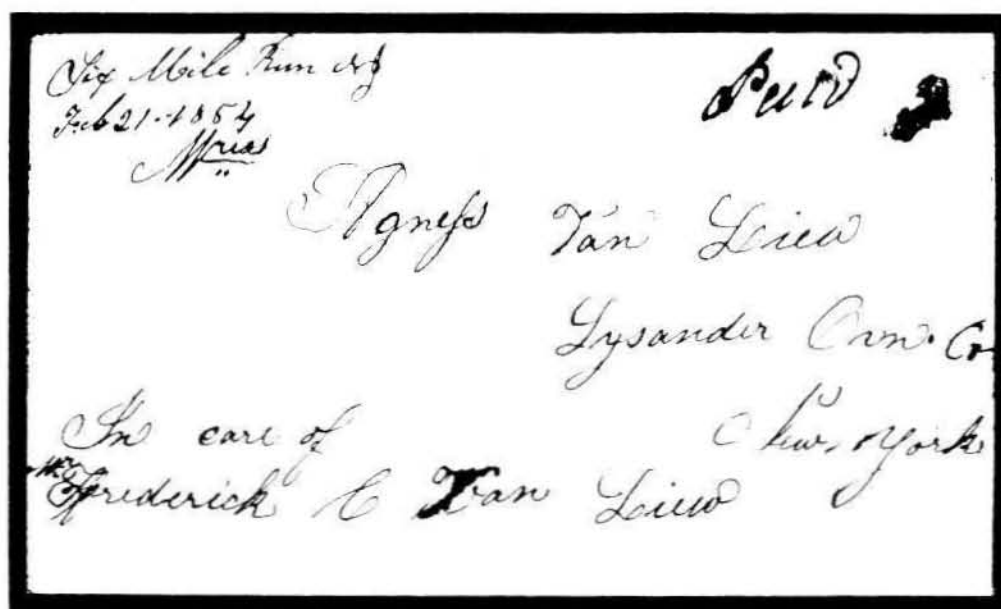 Six Mile Run NJ
Feb 21-1854
Paid 3
Mrss
Agness Van Liew
Lysander Onn. Co
New. York
In care of
Mr Frederick C Van Liew